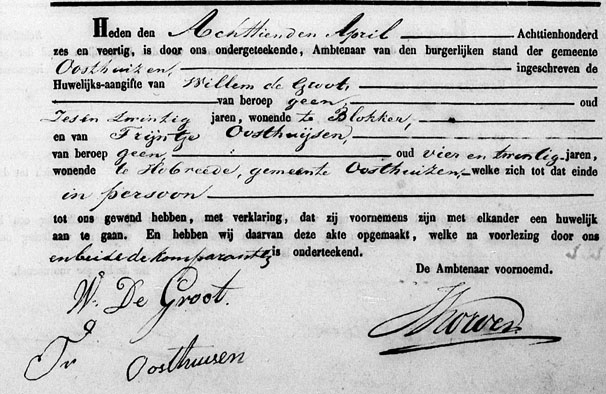 Heden den Achttienden April Achttienhonderd
zes en veertig, is door ons ondergeteekende, Ambtenaar van den burgerlijken stand der gemeente
Oosthuizen, ingeschreven de
Huwelijks-aangifte van Willem de Groot,
van beroep geen, oud
Zes en twintig jaren, wonende te Blokker,
en van Trijntje Oosthuijsen,
van beroep geen, oud vier en twintig jaren,
wonende te Hobreede, gemeente Oosthuizen, welke zich tot dat einde
in persoon
tot ons gewend hebben, met verklaring, dat zij voornemens zijn met elkander een huwelijk
aan te gaan. En hebben wij daarvan deze akte opgemaakt, welke na voorlezing door ons
en beide de komparanten is onderteekend.
De Ambtenaar voornoemd.
W. De Groot.
Tr Oosthuisen